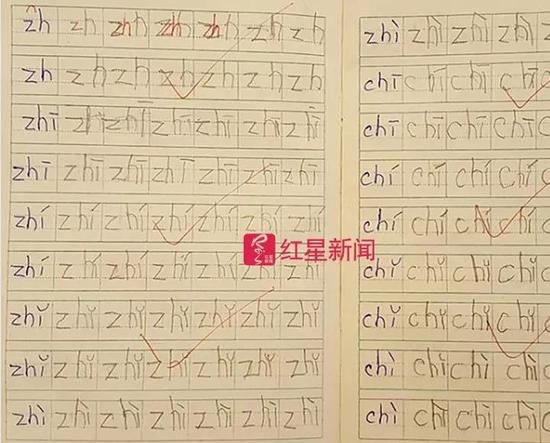 zh zh zh zh zh zh zh
zh zh zh zh zh zh zh
zhī zhī zhī zhī zhī zhī zhī
zhī zhī zhī zhī zhī zhī zhī
zhí zhí zhí zhí zhí zhí zhí
zhí zhí zhí zhí zhí zhí zhí
zhǐ zhǐ zhǐ zhǐ zhǐ zhǐ zhǐ
zhǐ zhǐ zhǐ zhǐ zhǐ zhǐ zhǐ
zhì zhì zhì zhì zhì zhì zhì
zhì zhì zhì zhì
chī chī chī chī
chī chī chī chī
chí chí chí chí
chí chí chí chí
chǐ chǐ chǐ chǐ
chǐ chǐ chǐ chǐ
chì chì chì chì
chì chì chì chì
红星新闻